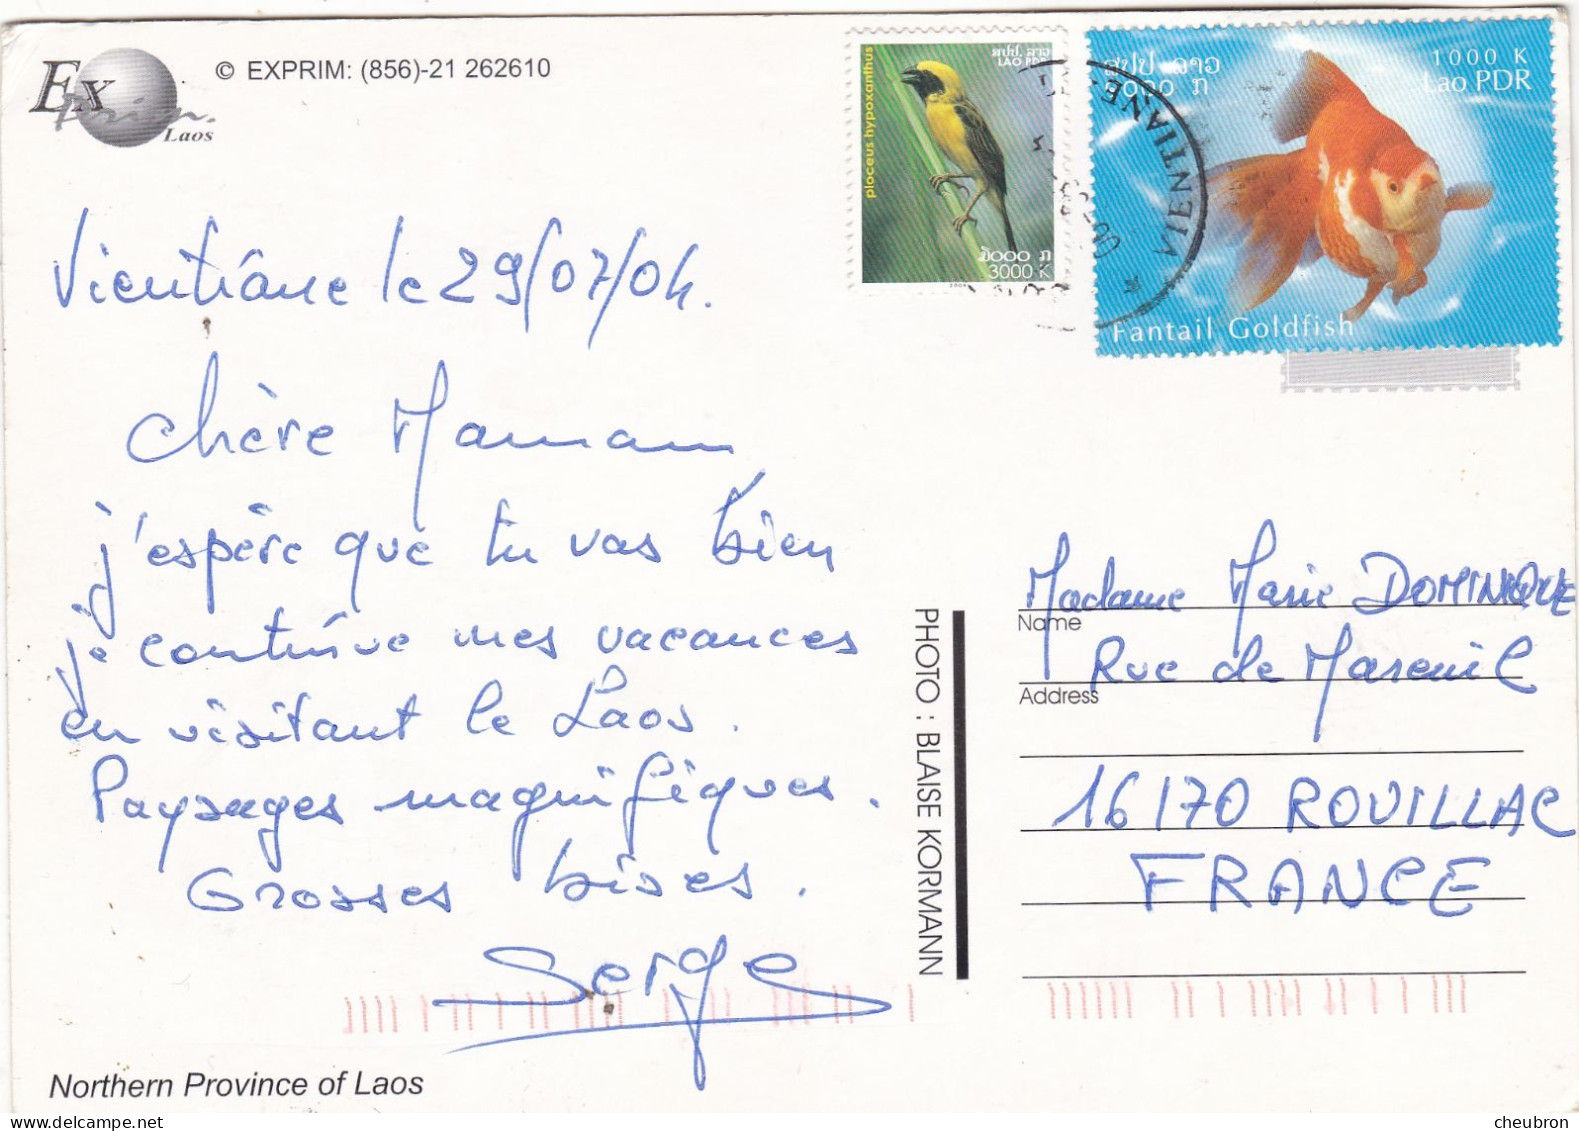 Ex
Prim.
Laos
© EXPRIM: (856)-21 262610
ploceus hypoxanthus
ສປປ. ລາວ
LAO PDR
໓໐໐໐ ກ
3000 K
2004
ສປປ ລາວ
1000 K
Lao PDR
VIENTIANE
Fantail Goldfish
Vientiâne le 29/07/04.
Chère Maman
j'espère que tu vas bien
je continue mes vacances
en visitant le Laos.
Paysages magnifiques.
Grosses bises.
Serge
Northern Province of Laos
PHOTO : BLAISE KORMANN
Madame Marie DOMINIQUE
Name
Rue de Mareuil
Address
16170 ROUILLAC
FRANCE
cheubron
www.delcampe.net